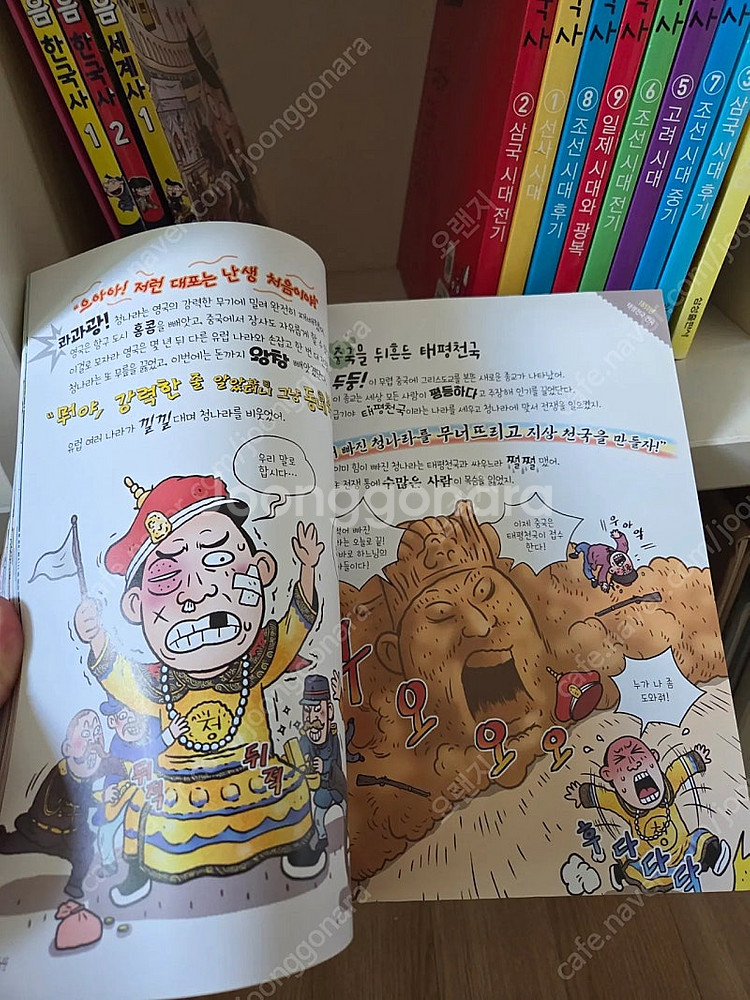 음 한국사 1
음 한국사 2
음 세계사 1
② 삼국 시대 전기
① 선사 시대
⑧ 조선 시대 후기
⑨ 일제 시대와 광복
⑥ 조선 시대 전기
⑤ 고려 시대
⑦ 조선 시대 중기
③ 삼국 시대 후기
삼성출판사
"으아아! 저런 대포는 난생 처음이야"
콰과광! 청나라는 영국의 강력한 무기에 밀려 완전히
영국은 항구 도시 홍콩을 빼앗고, 중국에서 장사도 자유롭게 할 수
이걸로 모자라 영국은 몇 년 뒤 다른 유럽 나라와 손잡고 한 번 더
청나라는 또 무릎을 꿇었고, 이번에는 돈까지 왕창
"뭐야, 강력한 줄 알았더니 그냥
유럽 여러 나라가 낄낄대며 청나라를 비웃었어.
우리 말로
합시다…
청
뒤적
뒤적
중국을 뒤흔든 태평천국
두둥! 이 무렵 중국에 그리스도교를 본뜬 새로운 종교가 나타났어.
이 종교는 세상 모든 사람이 평등하다고 주장해 인기를 끌었단다.
급기야 태평천국이라는 나라를 세우고 청나라에 맞서 전쟁을 일으켰지.
빠진 청나라를 무너뜨리고 지상 천국을 만들자!"
이미 힘이 빠진 청나라는 태평천국과 싸우느라 쩔쩔맸어.
전쟁 통에 수많은 사람이 목숨을 잃었지.
썩어 빠진
나는 오늘로 끝!
바로 하느님의
아들이다!
이제 중국은
태평천국이 접수
한다!
우아악
누가 나 좀
도와줘!
우오오오
후다다닥
오랜지
Joonggonara
cafe.naver.com/joonggonara